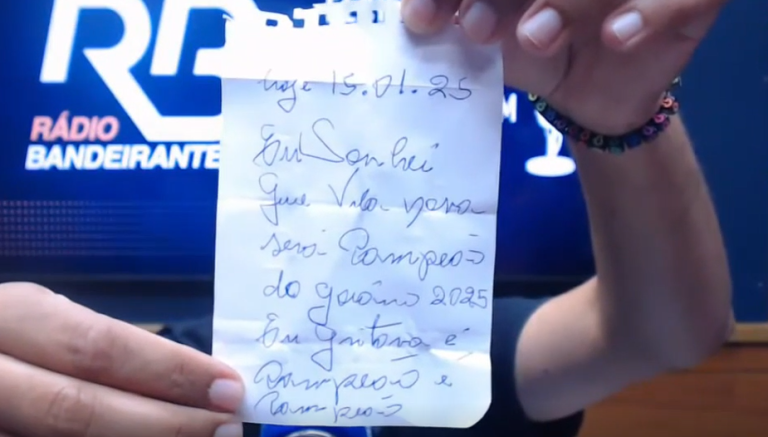 RB
RÁDIO
BANDEIRANTE
M
hoje 15.01.25
Eu Sonhei
Que Vila nova
será Campeão
do goiano 2025
Eu gritava é
Campeão e
Campeão